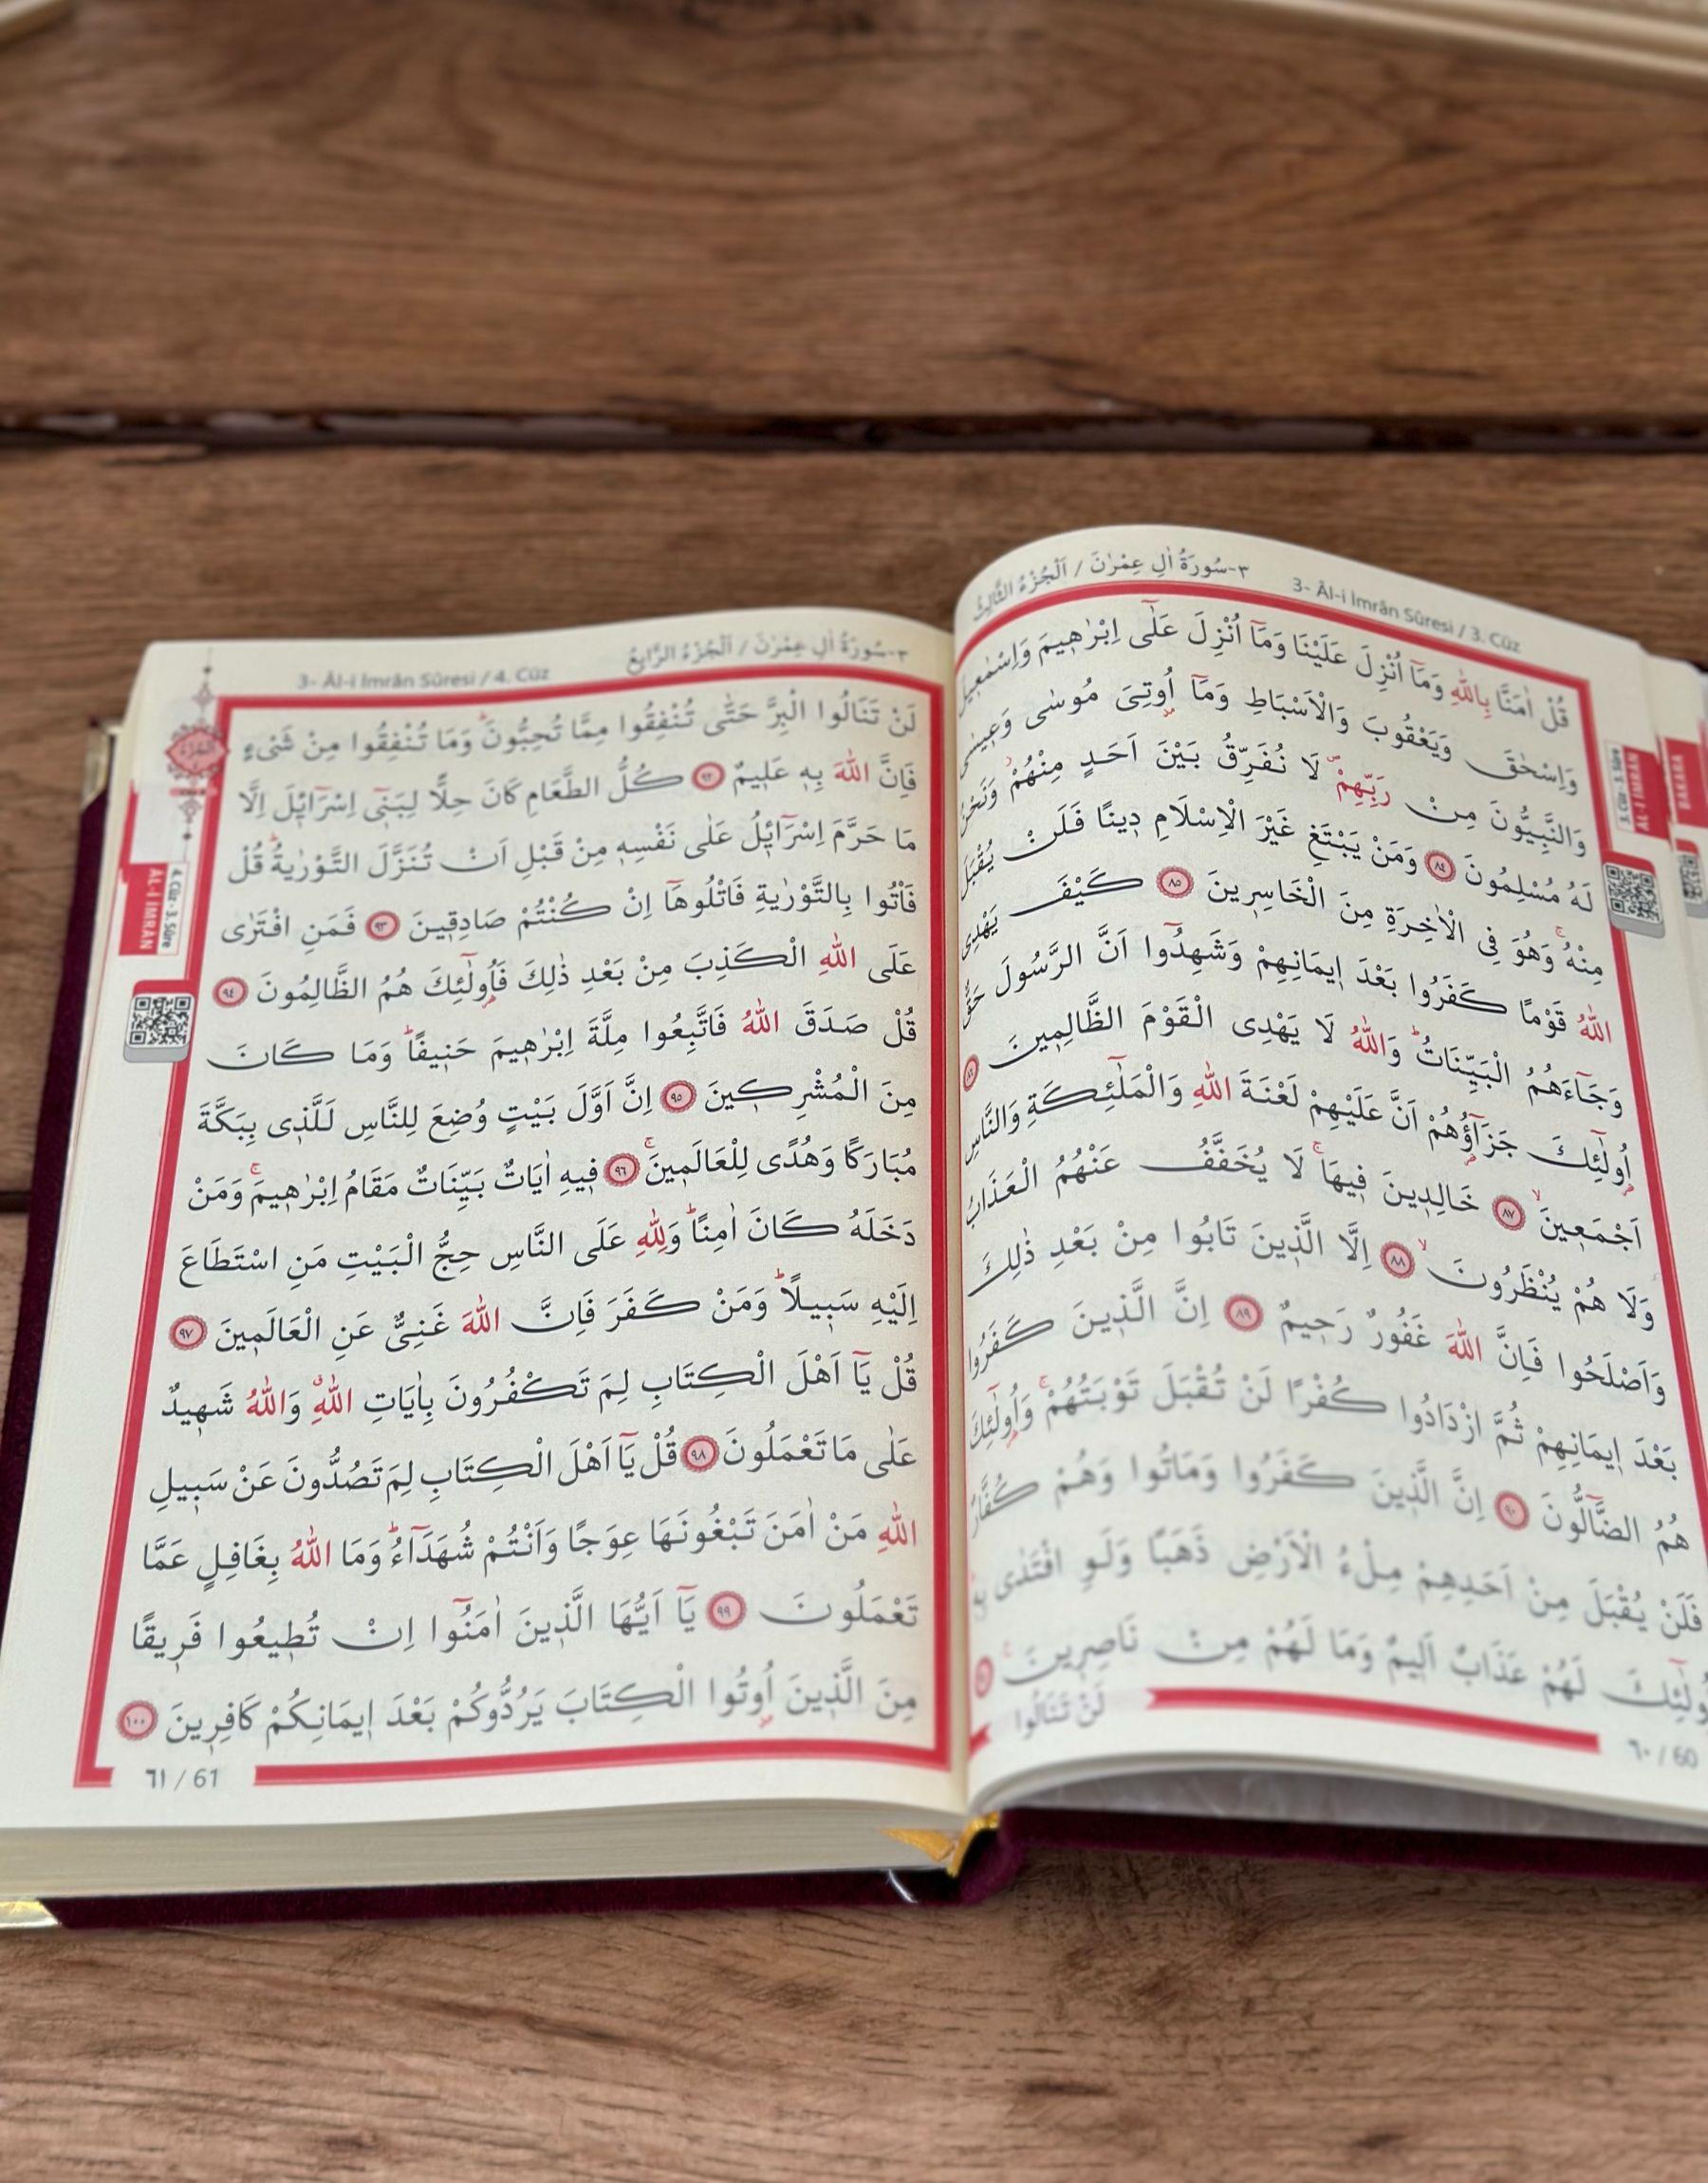 ٣-سُورَةُ اٰلِ عِمْرٰنَ / اَلْجُزْءُ الثَّالِثُ
3- Âl-i İmrân Sûresi / 3. Cüz
قُلْ اٰمَنَّا بِاللّٰهِ وَمَٓا اُنْزِلَ عَلَيْنَا وَمَٓا اُنْزِلَ عَلٰٓى اِبْرٰه۪يمَ وَاِسْمٰع۪يلَ
وَاِسْحٰقَ وَيَعْقُوبَ وَالْاَسْبَاطِ وَمَٓا اُو۫تِيَ مُوسٰى وَع۪يسٰى
وَالنَّبِيُّونَ مِنْ رَبِّهِمْۖ لَا نُفَرِّقُ بَيْنَ اَحَدٍ مِنْهُمْۘ وَنَحْنُ
لَهُ مُسْلِمُونَ ﴿٨٤﴾ وَمَنْ يَبْتَغِ غَيْرَ الْاِسْلَامِ د۪ينًا فَلَنْ يُقْبَلَ
مِنْهُۚ وَهُوَ فِي الْاٰخِرَةِ مِنَ الْخَاسِر۪ينَ ﴿٨٥﴾ كَيْفَ يَهْدِي
اللّٰهُ قَوْمًا كَفَرُوا بَعْدَ ا۪يمَانِهِمْ وَشَهِدُٓوا اَنَّ الرَّسُولَ حَقٌّ
وَجَٓاءَهُمُ الْبَيِّنَاتُۜ وَاللّٰهُ لَا يَهْدِي الْقَوْمَ الظَّالِم۪ينَ ﴿٨٦﴾
اُو۬لٰٓئِكَ جَزَٓاؤُ۬هُمْ اَنَّ عَلَيْهِمْ لَعْنَةَ اللّٰهِ وَالْمَلٰٓئِكَةِ وَالنَّاسِ
اَجْمَع۪ينَۙ ﴿٨٧﴾ خَالِد۪ينَ ف۪يهَاۚ لَا يُخَفَّفُ عَنْهُمُ الْعَذَابُ
وَلَا هُمْ يُنْظَرُونَۙ ﴿٨٨﴾ اِلَّا الَّذ۪ينَ تَابُوا مِنْ بَعْدِ ذٰلِكَ
وَاَصْلَحُوا فَاِنَّ اللّٰهَ غَفُورٌ رَح۪يمٌ ﴿٨٩﴾ اِنَّ الَّذ۪ينَ كَفَرُوا
بَعْدَ ا۪يمَانِهِمْ ثُمَّ ازْدَادُوا كُفْرًا لَنْ تُقْبَلَ تَوْبَتُهُمْۚ وَاُو۬لٰٓئِكَ
هُمُ الضَّٓالُّونَ ﴿٩٠﴾ اِنَّ الَّذ۪ينَ كَفَرُوا وَمَاتُوا وَهُمْ كُفَّارٌ
فَلَنْ يُقْبَلَ مِنْ اَحَدِهِمْ مِلْءُ الْاَرْضِ ذَهَبًا وَلَوِ افْتَدٰى بِه۪ۜ
اُو۬لٰٓئِكَ لَهُمْ عَذَابٌ اَل۪يمٌ وَمَا لَهُمْ مِنْ نَاصِر۪ينَۚ
لَنْ تَنَالُوا
٦٠ / 60
3. Cüz - 3. Sûre
AL-İ İMRAN
BAKARA
٣-سُورَةُ اٰلِ عِمْرٰنَ / اَلْجُزْءُ الرَّابِعُ
3- Âl-i İmrân Sûresi / 4. Cüz
لَنْ تَنَالُوا الْبِرَّ حَتّٰى تُنْفِقُوا مِمَّا تُحِبُّونَۜ وَمَا تُنْفِقُوا مِنْ شَيْءٍ
فَاِنَّ اللّٰهَ بِه۪ عَل۪يمٌ ﴿٩٢﴾ كُلُّ الطَّعَامِ كَانَ حِلًّا لِبَن۪ٓي اِسْرَٓائ۪لَ اِلَّا
مَا حَرَّمَ اِسْرَٓائ۪لُ عَلٰى نَفْسِه۪ مِنْ قَبْلِ اَنْ تُنَزَّلَ التَّوْرٰيةُۜ قُلْ
فَأْتُوا بِالتَّوْرٰيةِ فَاتْلُوهَٓا اِنْ كُنْتُمْ صَادِق۪ينَ ﴿٩٣﴾ فَمَنِ افْتَرٰى
عَلَى اللّٰهِ الْكَذِبَ مِنْ بَعْدِ ذٰلِكَ فَاُو۬لٰٓئِكَ هُمُ الظَّالِمُونَ ﴿٩٤﴾
قُلْ صَدَقَ اللّٰهُ فَاتَّبِعُوا مِلَّةَ اِبْرٰه۪يمَ حَن۪يفًاۜ وَمَا كَانَ
مِنَ الْمُشْرِك۪ينَ ﴿٩٥﴾ اِنَّ اَوَّلَ بَيْتٍ وُضِعَ لِلنَّاسِ لَلَّذ۪ي بِبَكَّةَ
مُبَارَكًا وَهُدًى لِلْعَالَم۪ينَۚ ﴿٩٦﴾ ف۪يهِ اٰيَاتٌ بَيِّنَاتٌ مَقَامُ اِبْرٰه۪يمَۚ وَمَنْ
دَخَلَهُ كَانَ اٰمِنًاۜ وَلِلّٰهِ عَلَى النَّاسِ حِجُّ الْبَيْتِ مَنِ اسْتَطَاعَ
اِلَيْهِ سَب۪يلًاۜ وَمَنْ كَفَرَ فَاِنَّ اللّٰهَ غَنِيٌّ عَنِ الْعَالَم۪ينَ ﴿٩٧﴾
قُلْ يَٓا اَهْلَ الْكِتَابِ لِمَ تَكْفُرُونَ بِاٰيَاتِ اللّٰهِۗ وَاللّٰهُ شَه۪يدٌ
عَلٰى مَا تَعْمَلُونَ ﴿٩٨﴾ قُلْ يَٓا اَهْلَ الْكِتَابِ لِمَ تَصُدُّونَ عَنْ سَب۪يلِ
اللّٰهِ مَنْ اٰمَنَ تَبْغُونَهَا عِوَجًا وَاَنْتُمْ شُهَدَٓاءُۜ وَمَا اللّٰهُ بِغَافِلٍ عَمَّا
تَعْمَلُونَ ﴿٩٩﴾ يَٓا اَيُّهَا الَّذ۪ينَ اٰمَنُٓوا اِنْ تُط۪يعُوا فَر۪يقًا
مِنَ الَّذ۪ينَ اُو۫تُوا الْكِتَابَ يَرُدُّوكُمْ بَعْدَ ا۪يمَانِكُمْ كَافِر۪ينَ ﴿١٠٠﴾
٦١ / 61
4. Cüz - 3. Sûre
AL-İ İMRAN